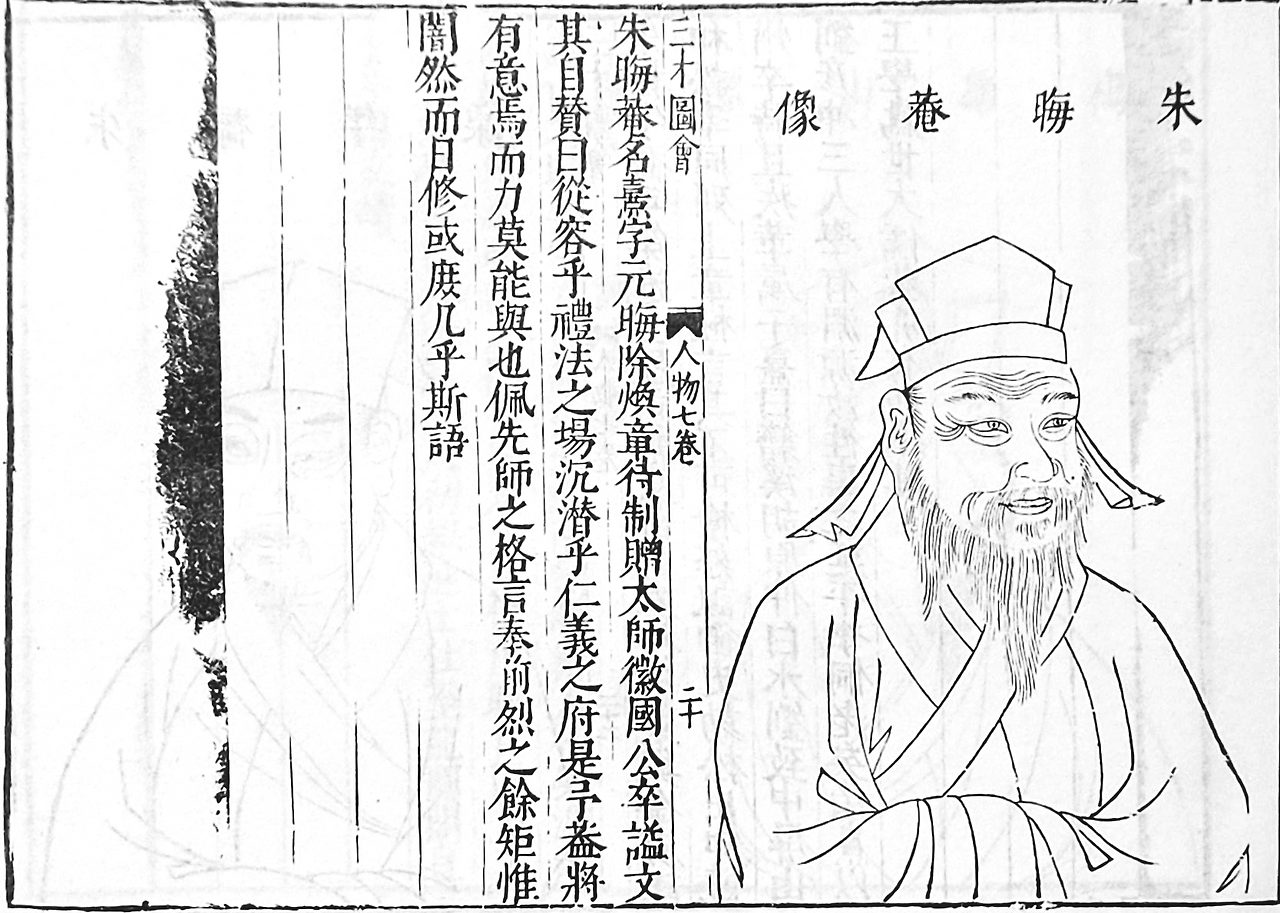 朱晦菴像
三才圖會
人物七卷
二十
朱晦菴名熹字元晦除煥章待制贈太師徽國公卒諡文
其自贊曰從容乎禮法之場沉潜乎仁義之府是予葢將
有意焉而力莫能與也佩先師之格言奉前烈之餘矩惟
闇然而日修或庻几乎斯語